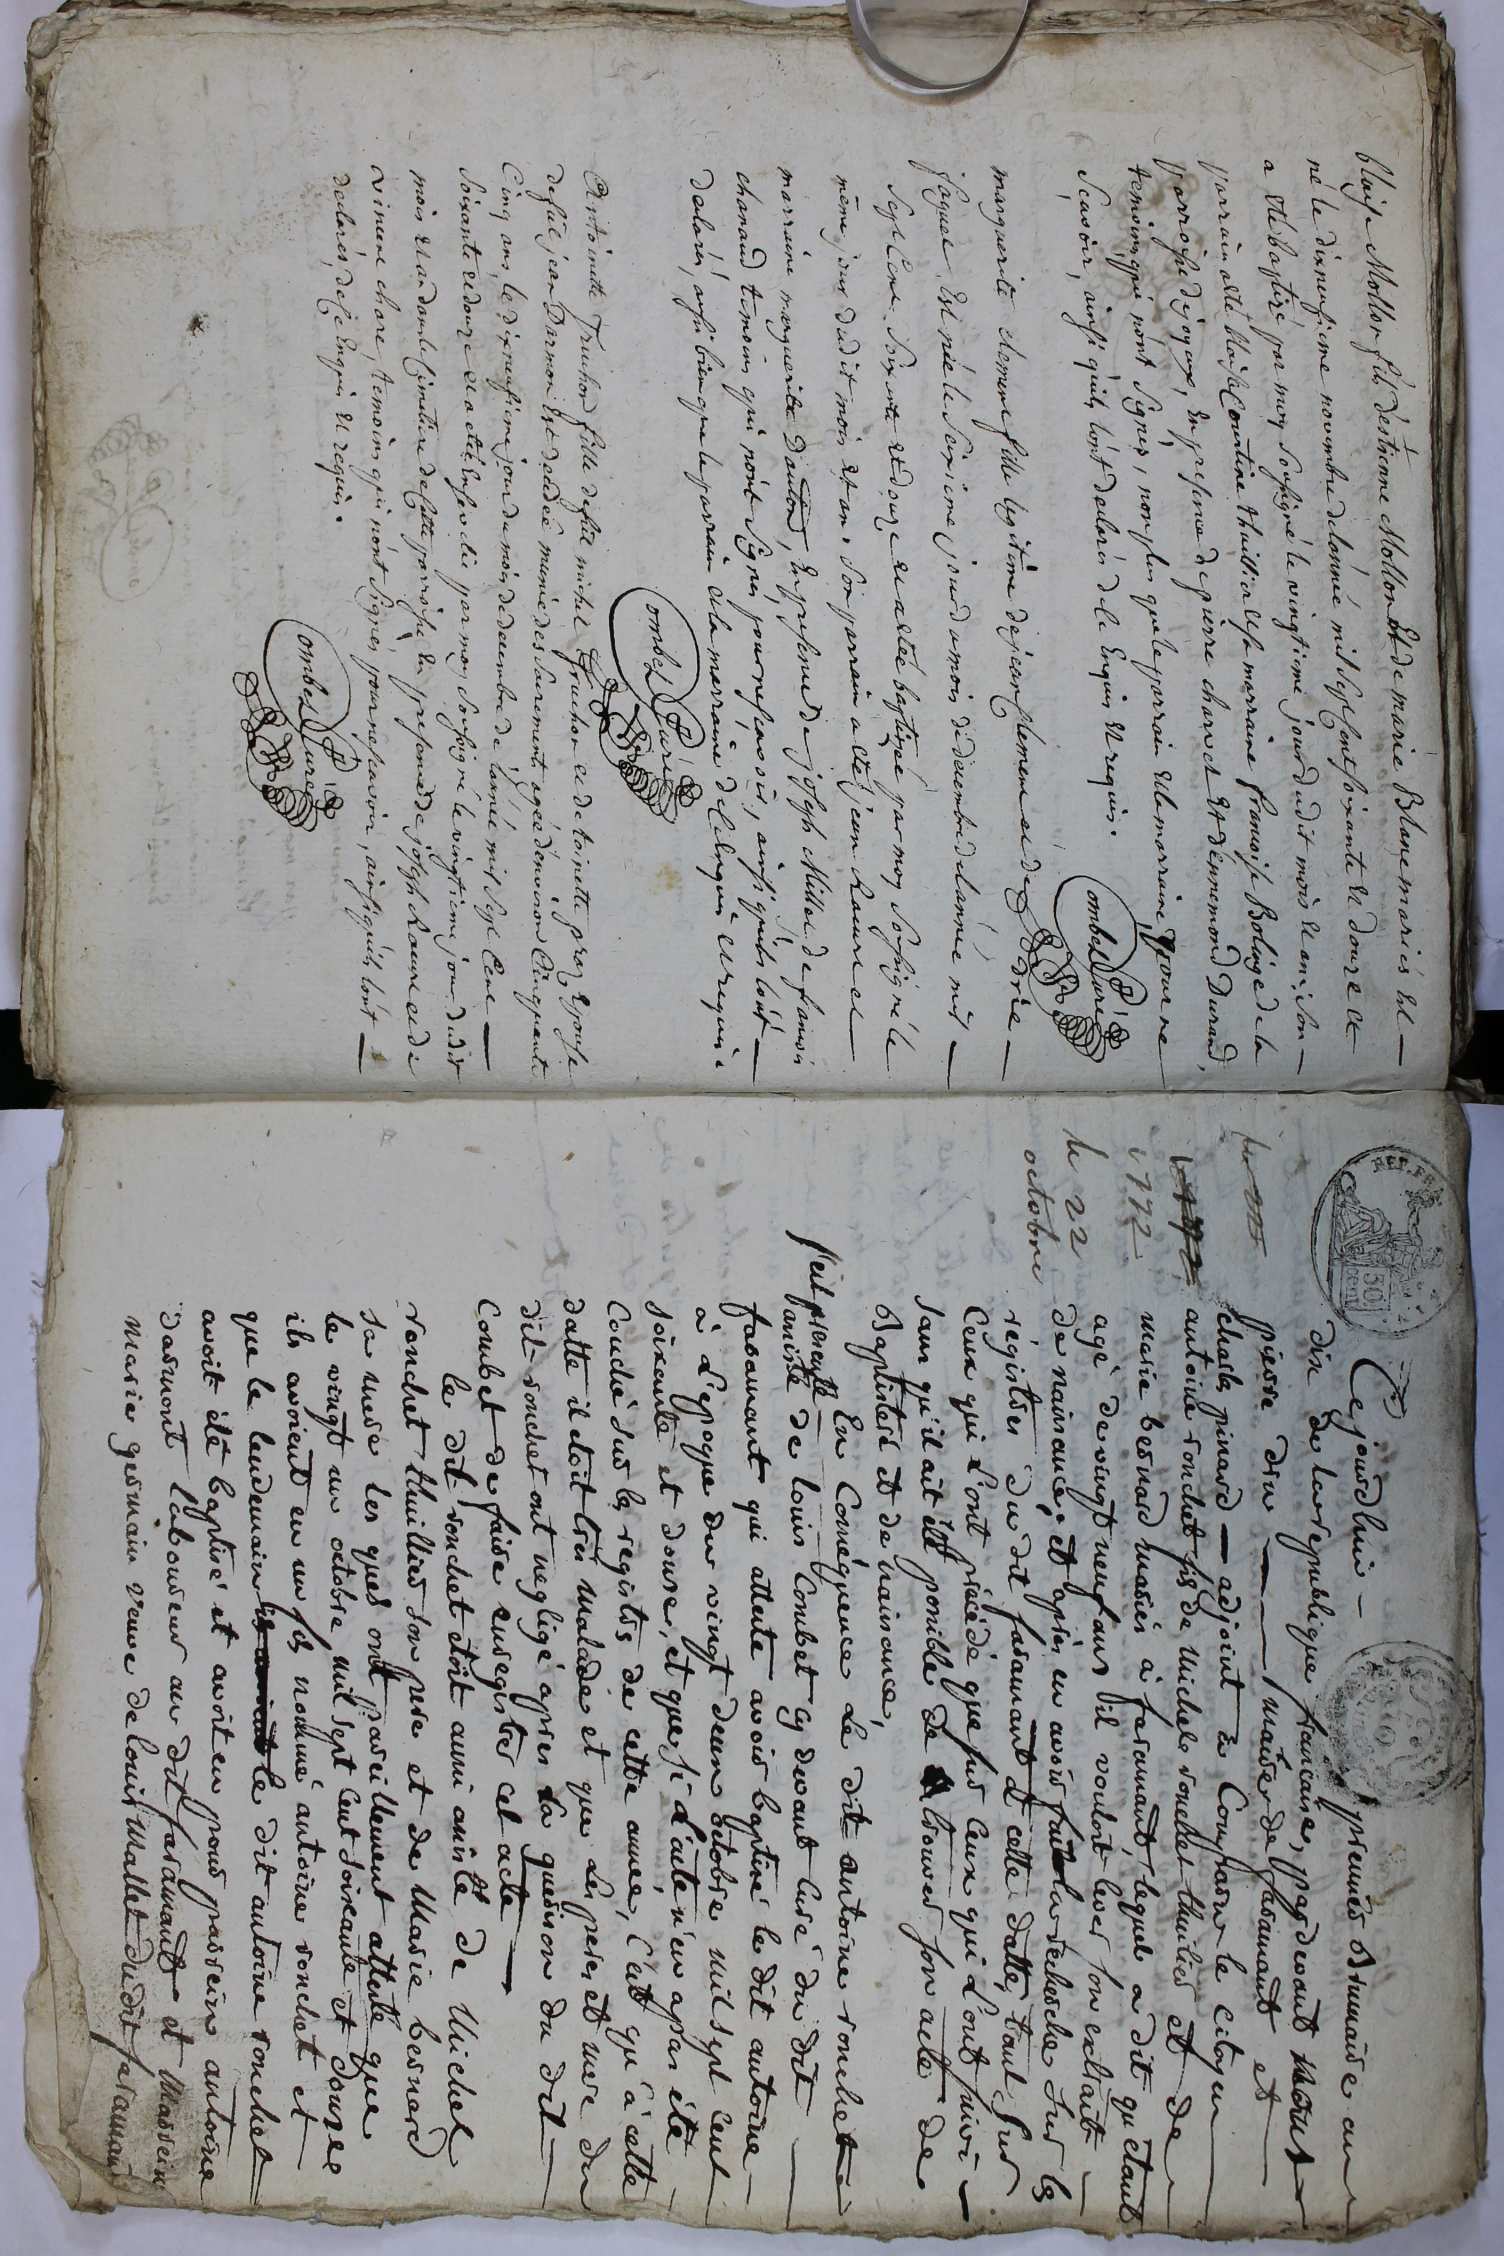 blaise Mollon fils d'estiene Mollon Et de marie Blanc mariés Est
né le dixneufieme novembre de lannée mil sept cent soixante et douze et
a été baptizé par moy soussigné le vingtieme jour dudit mois et an, son
parrain a été blaise Courtine thuillier et sa marraine francoise Bolinge de la
parroisse de joyaux, en presence de pierre charvet Et d'ennemond Durand,
temoins qui n'ont signés, non plus que le parrain et la marraine, pour ne
scavoir, ainsi qu'ils l'ont declarés de ce Enquis Et requis.
Combet Curé
marguerite clement fille legitime de jean clement et de
joyaux, Est née le seizieme jour du mois de decembre de lannée mil
sept Cent soixante Et douze et a été baptizée par moy soussigné le
même jour dudit mois et an. son parrain a été jean Raunet
marraine marguerite en presence de joseph Millet de francois
chanaud temoins qui n'ont signés pour ne scavoir, ainsi qu'ils l'ont
declarés, aussi bien que le parrain et la marraine de ce Enquis et requis.
Combet Curé
Antoinette Truchon fille de feu michel Truchon et de toinette epouse
de feu jean Darmon Est decedée munie des sacrements agée d'environ Cinquante
Cinq ans, le dixneufieme jour du mois de decembre de lannée mil sept Cent
soixante et douze et a été Ensevelie par moy soussigné le vingtieme jour dudit
mois et an dans le Cimetiere de Cette parroisse En presence de joseph Raunet et de
vincent chore, temoins qui n'ont signés pour ne scavoir, ainsi qu'ils l'ont
declarés, de ce Enquis Et requis.
Combet Curé
50 cent
Ce jourd'hui premier Brumaire an
dix de la republique francaise, pardevant nous
pierre drw maire de faramant et
charles pinard adjoint a Comparu le citoyen
antoine ronchet fils de Michel ronchet thuilier et de
marie besnard mariés à faramant, lequel a dit qu'etant
agé de vingt neuf ans il vouloit lever son extrait
de naissance, et après en avoir fait la recherche sur les
régistres du dit faramant et cette datte, tant sur
Ceux qui l'ont précédé que sur Ceux qui l'ont suivi
sans qu'il ait été possible de trouver son acte de
Baptistère et de naissance,
1772
le 22
octobre
En Conséquence Le dit antoine ronchet
s'est presenté
assisté de louis Combet cy devant Curé du dit
faramant qui atteste avoir baptisé le dit antoine
à l'epoque du vingt deux octobre mil sept cent
soixante et douze, et que si l'acte n'en a pas été
Couché sur les registres de cette année, C'est qu'a cette
datte il etoit tres malade et que les pere et mere du
dit ronchet ont negligé apres la guerison du dit
Combet de faire enregistrer cet acte
le dit ronchet etoit aussi assisté de Michel
ronchet thuillier son pere et de Marie besnard
sa mere les quels ont pareillement attesté que
le vingt un octobre mil sept Cent soixante et douze
ils avoient eu un fils nommé antoine ronchet et
que le lendemain le dit antoine ronchet
avoit été baptisé et avoit eu pour parrein antoine
darmont laboureur au dit faramant et Marreine
marie germain veuve de louis Mallet du dit faramant